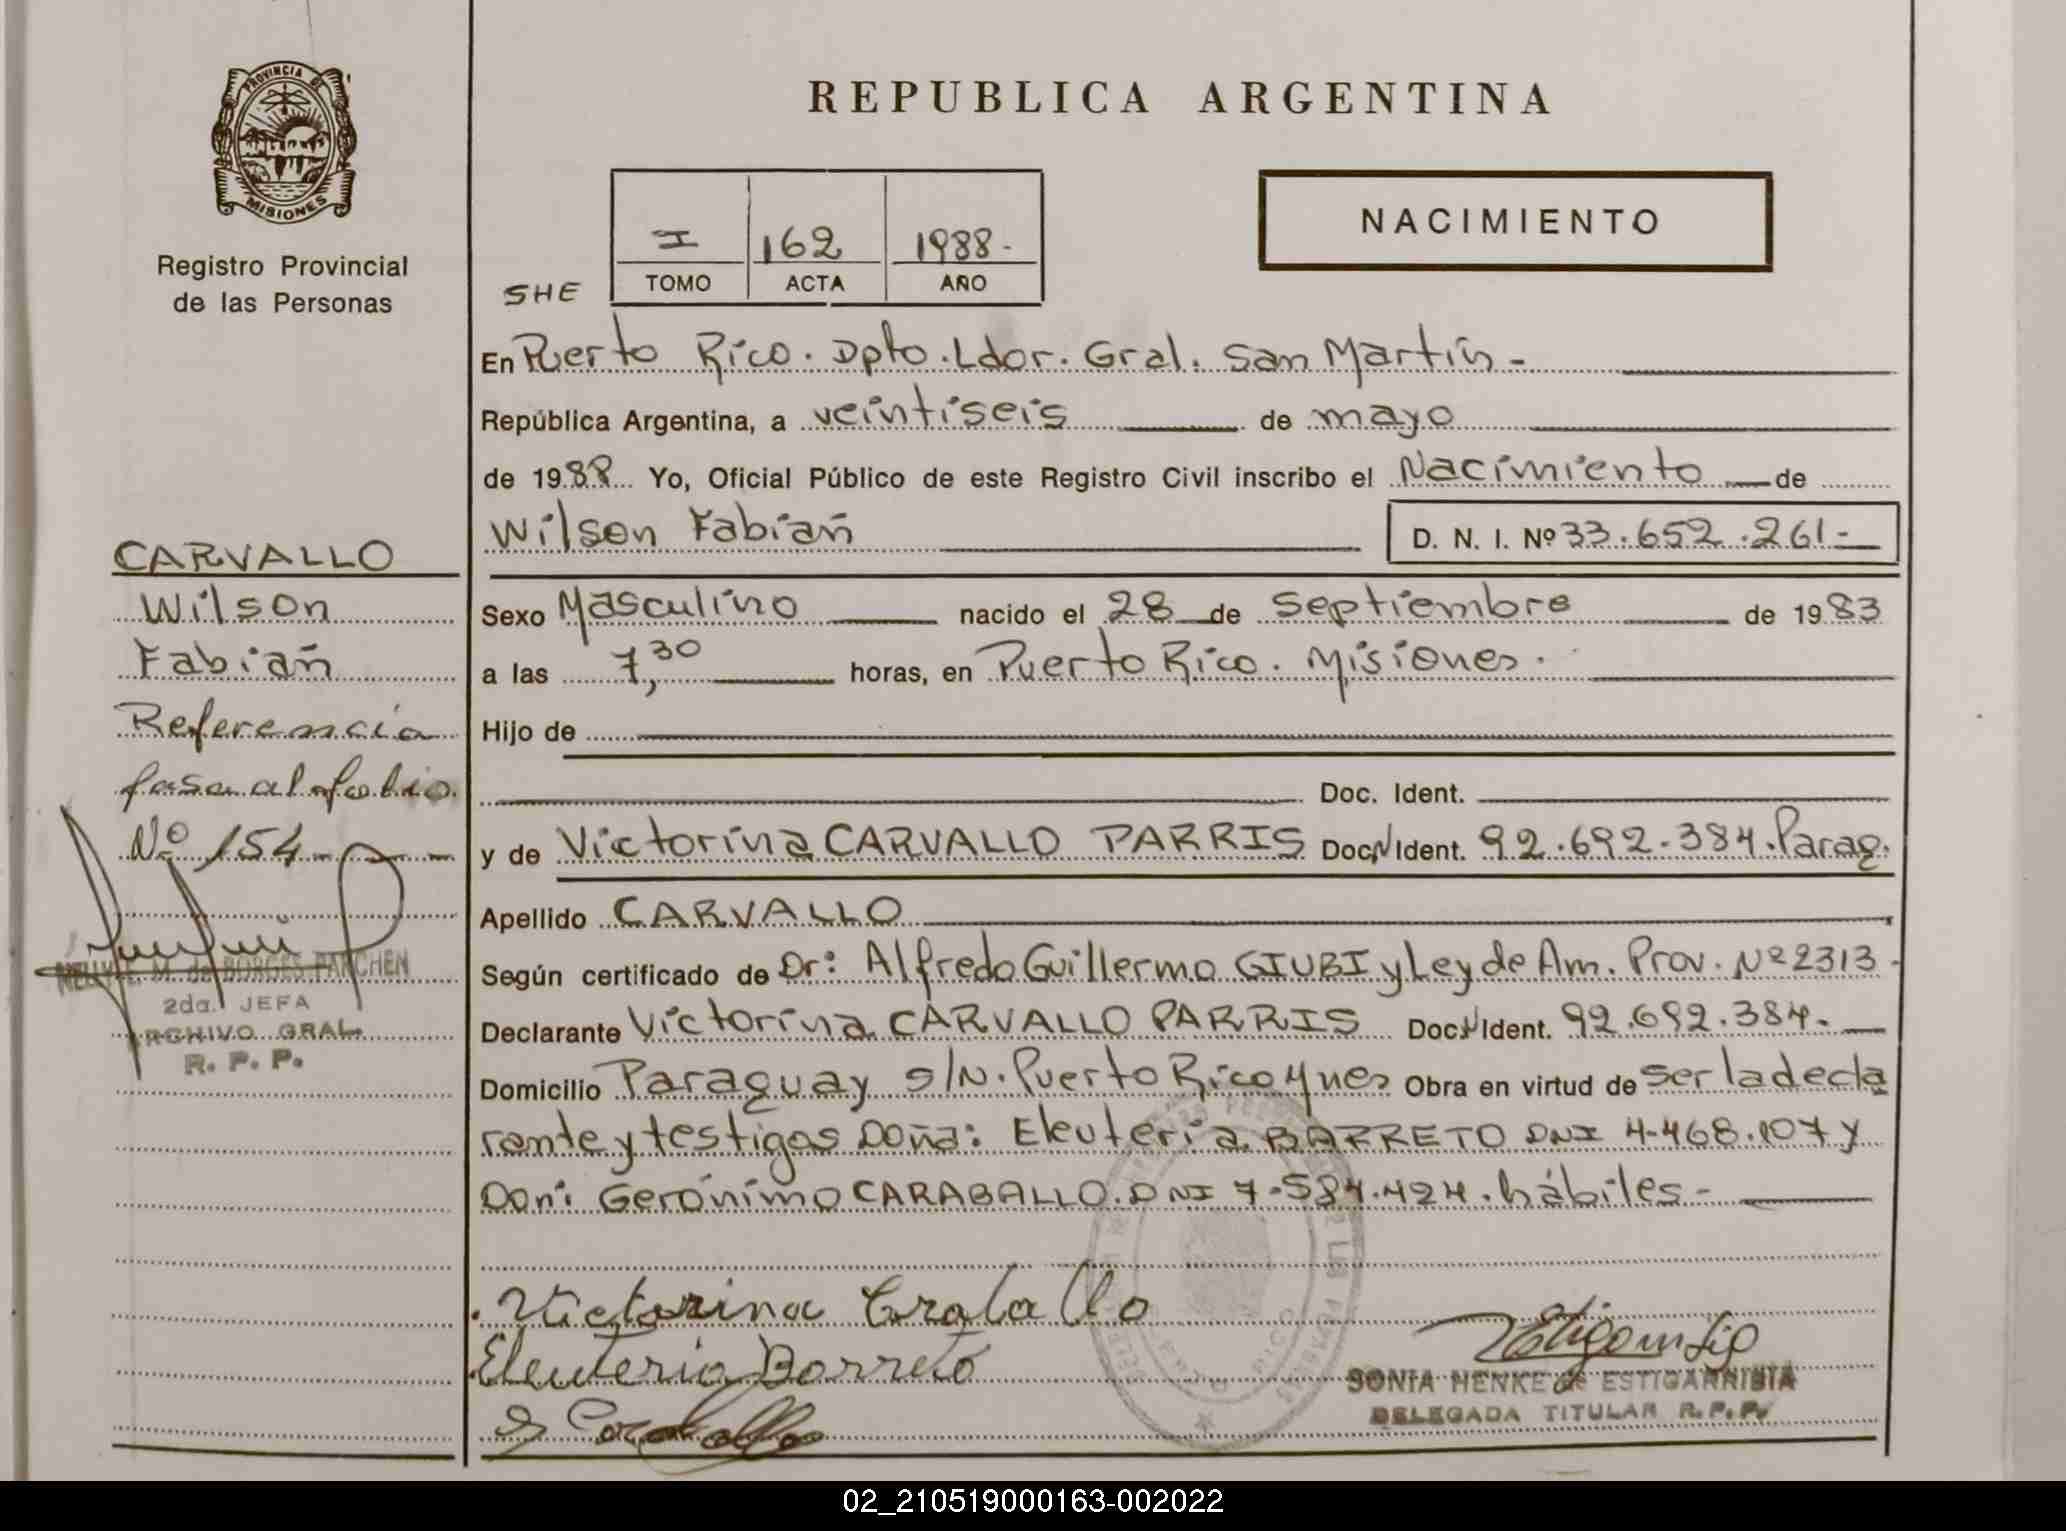 PROVINCIA DE
MISIONES
Registro Provincial
de las Personas
REPUBLICA ARGENTINA
I 162 1988-
TOMO ACTA AÑO
NACIMIENTO
SHE
En Puerto Rico. Dpto. Ldor. Gral. San Martín-
República Argentina, a veintiseis de mayo
de 1988 Yo, Oficial Público de este Registro Civil inscribo el Nacimiento de
Wilson Fabián D. N. I. Nº 33.652.261-
Sexo Masculino nacido el 28 de Septiembre de 1983
a las 7,30 horas, en Puerto Rico. Misiones.
Hijo de
Doc. Ident.
y de Victorina CARVALLO PARRIS Doc. Ident. 92.692.384. Parag.
Apellido CARVALLO
Según certificado de Dr: Alfredo Guillermo GIUBI y Ley de Am. Prov. Nº 2313-
Declarante Victorina CARVALLO PARRIS Doc. Ident. 92.692.384.
Domicilio Paraguay s/N. Puerto Rico Mnes Obra en virtud de ser la decla
rante y testigos Doña: Eleuteria BARRETO DNI 4.468.107 y
Don: Gerónimo CARABALLO. DNI 7.584.424. hábiles-
Victorina
Eleuteria Barreto
SONIA HENKE de ESTIGARRIBIA
DELEGADA TITULAR R.P.P.
CARVALLO
Wilson
Fabián
Referencia
pasa al folio
Nº 154
NELLY E. M. de BORGES PARCHEN
2da. JEFA
ARCHIVO GRAL.
R. P. P.
02_210519000163-002022